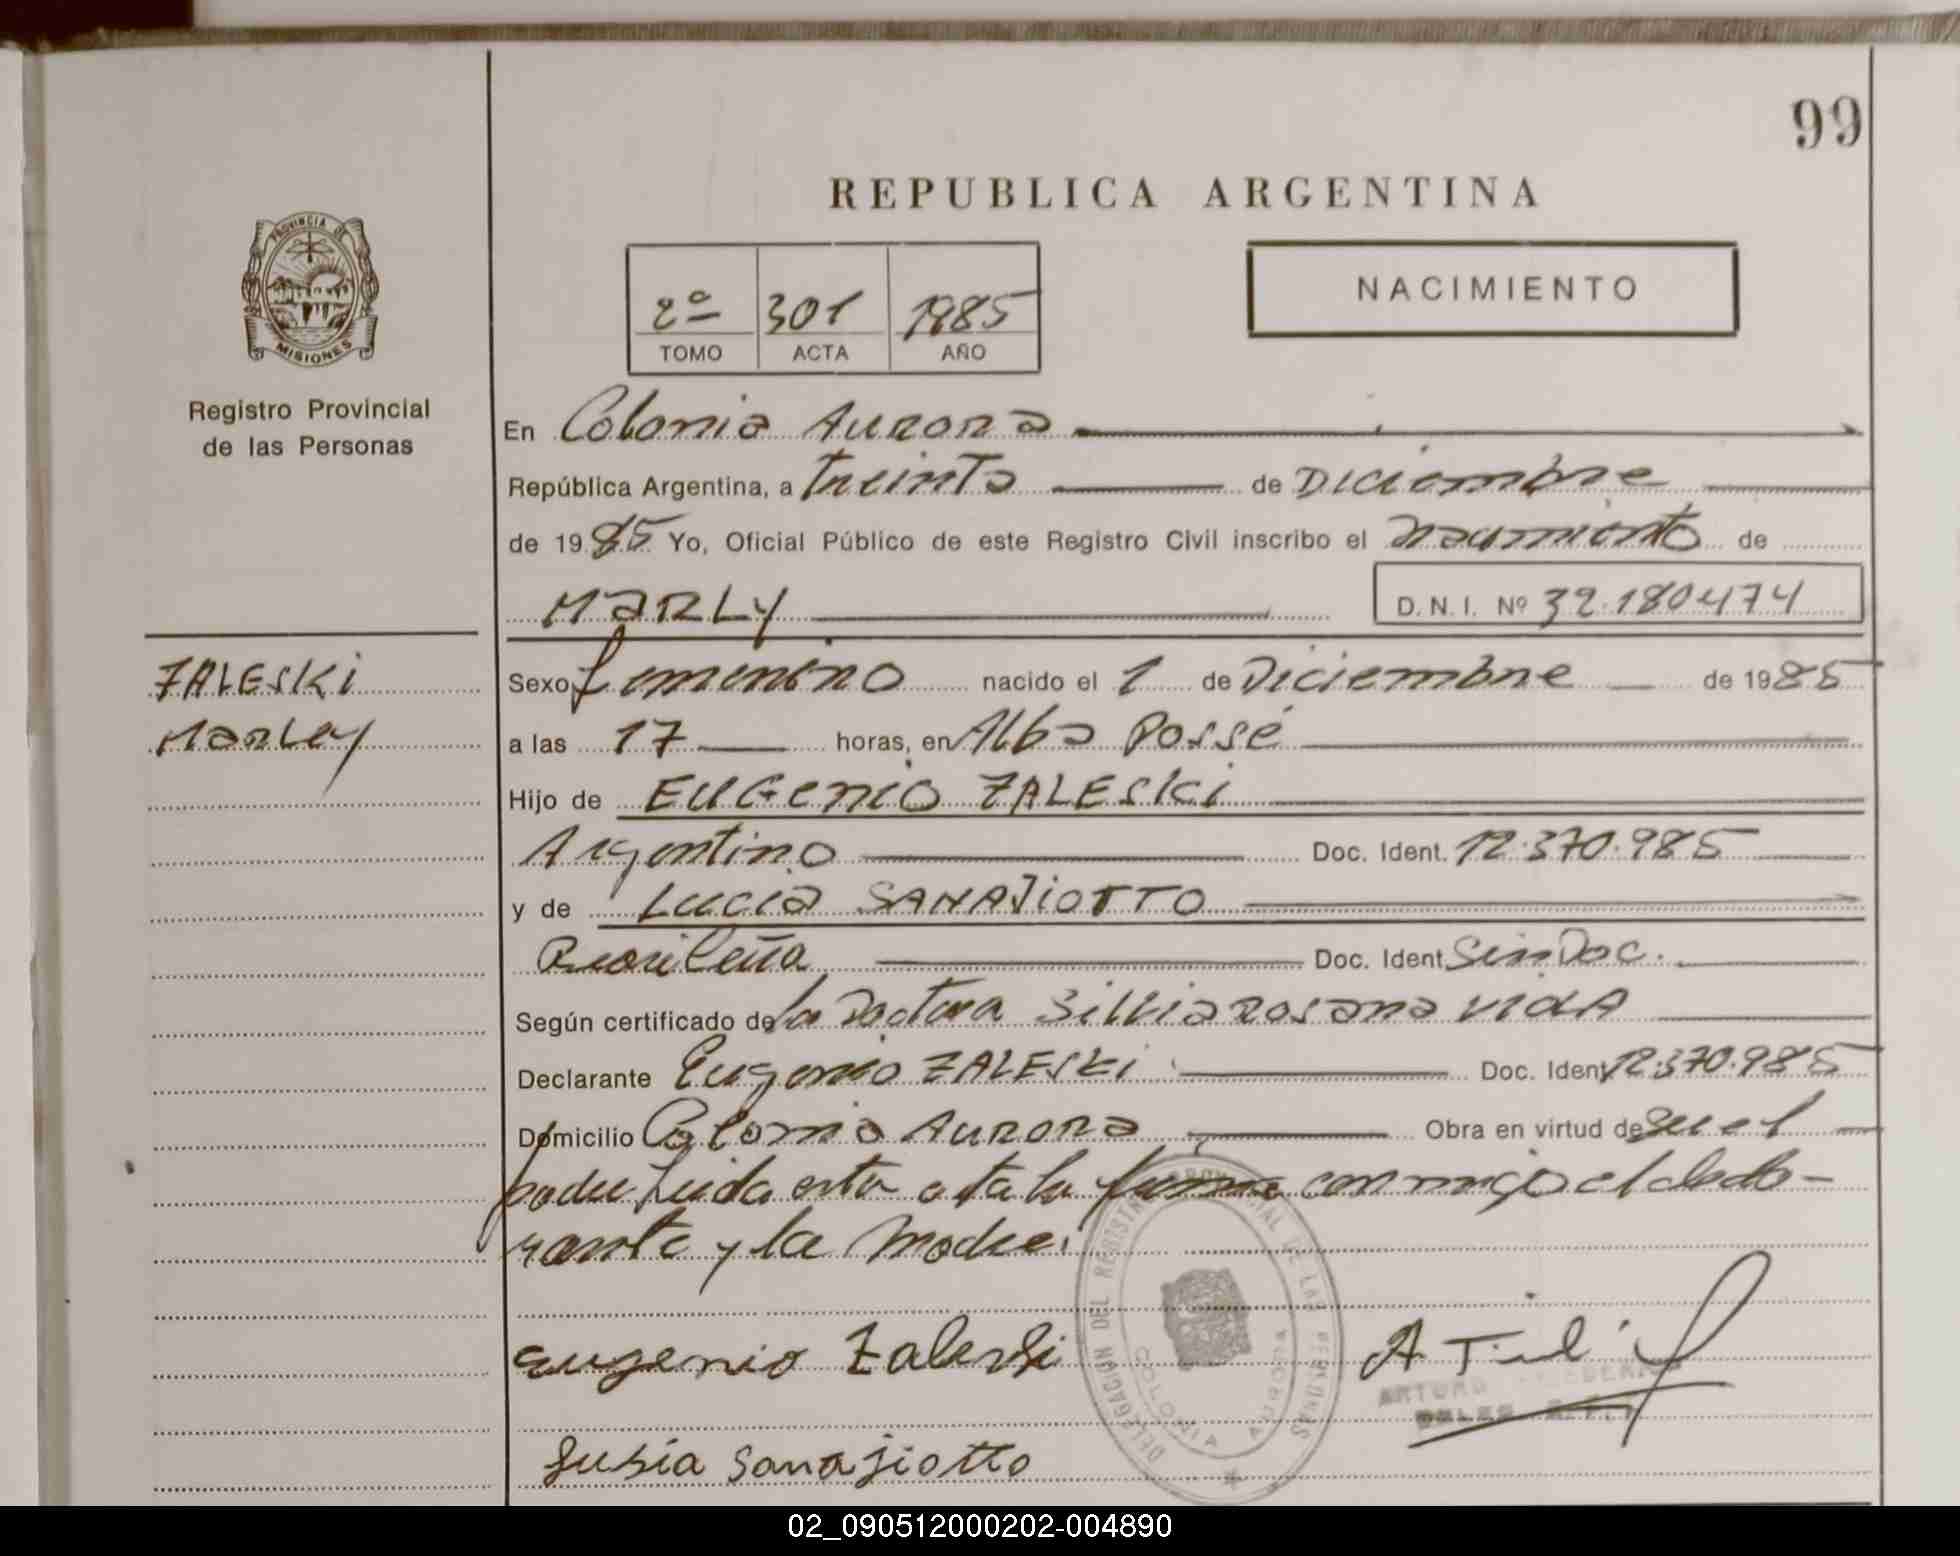 99
REPUBLICA ARGENTINA
PROVINCIA DE
MISIONES
Registro Provincial
de las Personas
2º 301 1985
TOMO ACTA AÑO
NACIMIENTO
En Colonia Aurora
República Argentina, a treinta de Diciembre
de 1985 Yo, Oficial Público de este Registro Civil inscribo el nacimiento de
MARLY
D.N.I. Nº 32.180474
ZALESKI
Marley
Sexo femenino nacido el 1 de Diciembre de 1985
a las 17 horas, en Alba Posse
Hijo de EUGenio ZALESKi
Argentino Doc. Ident. 12.370.985
y de Lucia SANAJiOTTO
Brasileña Doc. Ident. Sin Doc.
Según certificado de la Doctora Silvia Rosana VidA
Declarante Eugenio ZALESKi Doc. Ident. 12.370.985
Domicilio Colonia Aurora Obra en virtud de ser el
padre Leida esta acta la firma conmigo el decla-
rante y la Madre.
DELEGACION DEL REGISTRO PROVINCIAL DE LAS PERSONAS
COLONIA AURORA
Eugenio Zaleski
ARTURO
Lusia Sanajiotto
02_090512000202-004890